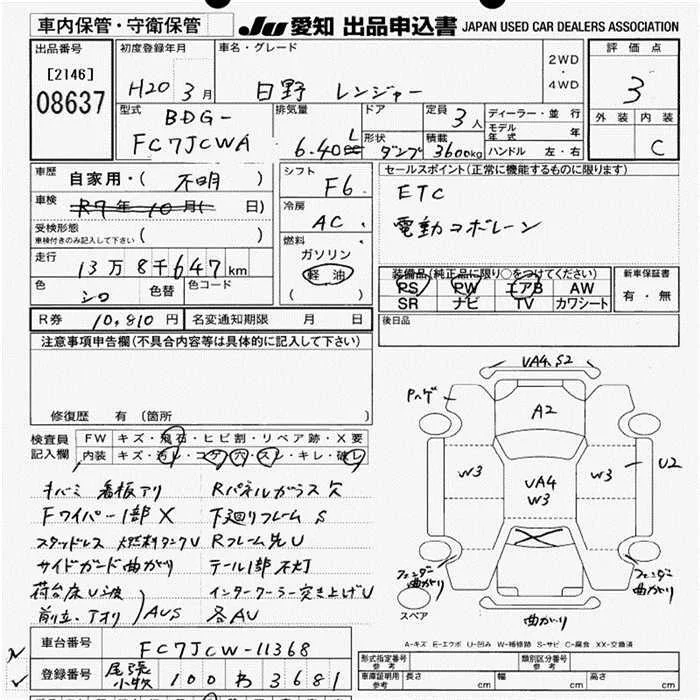 車内保管・守衛保管
JU 愛知 出品申込書 JAPAN USED CAR DEALERS ASSOCIATION
出品番号
[2146]
08637
初度登録年月
H20 3月
車名・グレード
日野 レンジャー
2WD
・
4WD
評価点
3
外装 内装
C
型式
BDG-
FC7JCWA
排気量
6.40 L
ドア
形状
ダンプ
定員
3人
積載
3600kg
ディーラー・並行
モデル年式 年
ハンドル 左・右
車歴
自家用・( 不明 )
車検
R7年10月( 日)
受検形態
車検付きのみ記入して下さい ( )
走行
13万8千647km
色
シロ
色替
色コード
シフト
F6
冷房
AC
燃料
ガソリン
軽油
( )
セールスポイント(正常に機能するものに限ります)
ETC
電動コボレーン
装備品(純正品に限り○をつけてください)
PS PW エアB AW
SR ナビ TV カワシート
新車保証書
有・無
R券 10,810円
名変通知期限 月 日
後日品
注意事項申告欄(不具合内容等は具体的に記入して下さい)
修復歴 有(箇所 )
検査員
記入欄
FW キズ・飛石・ヒビ割・リペア跡・X要
内装 キズ・汚レ・コゲ・穴・スレ・キレ・破レ
キバミ 看板アリ
Rパネルガラス欠
Fワイパー1部X
下廻りフレームS
スタッドレス 燃料タンクU
Rフレーム先U
サイドガード曲がり
テール1部不灯
荷台床U波
インタークーラー突き上げU
前立、アオリ AUS
各AU
車台番号 FC7JCW-11368
登録番号 尾張小牧 100 わ 3681
VA4、S2
Pハゲ
A2
W3
VA4
W3
W3
U2
フェンダー曲がり
フェンダー曲がり
スペア
曲がり
A-キズ E-エクボ U-凹み W-補修跡 S-サビ C-腐食 XX-交換済
型式指定番号
参考
類別区分番号
参考
車庫証明用
参考
長さ cm
幅 cm
高さ cm